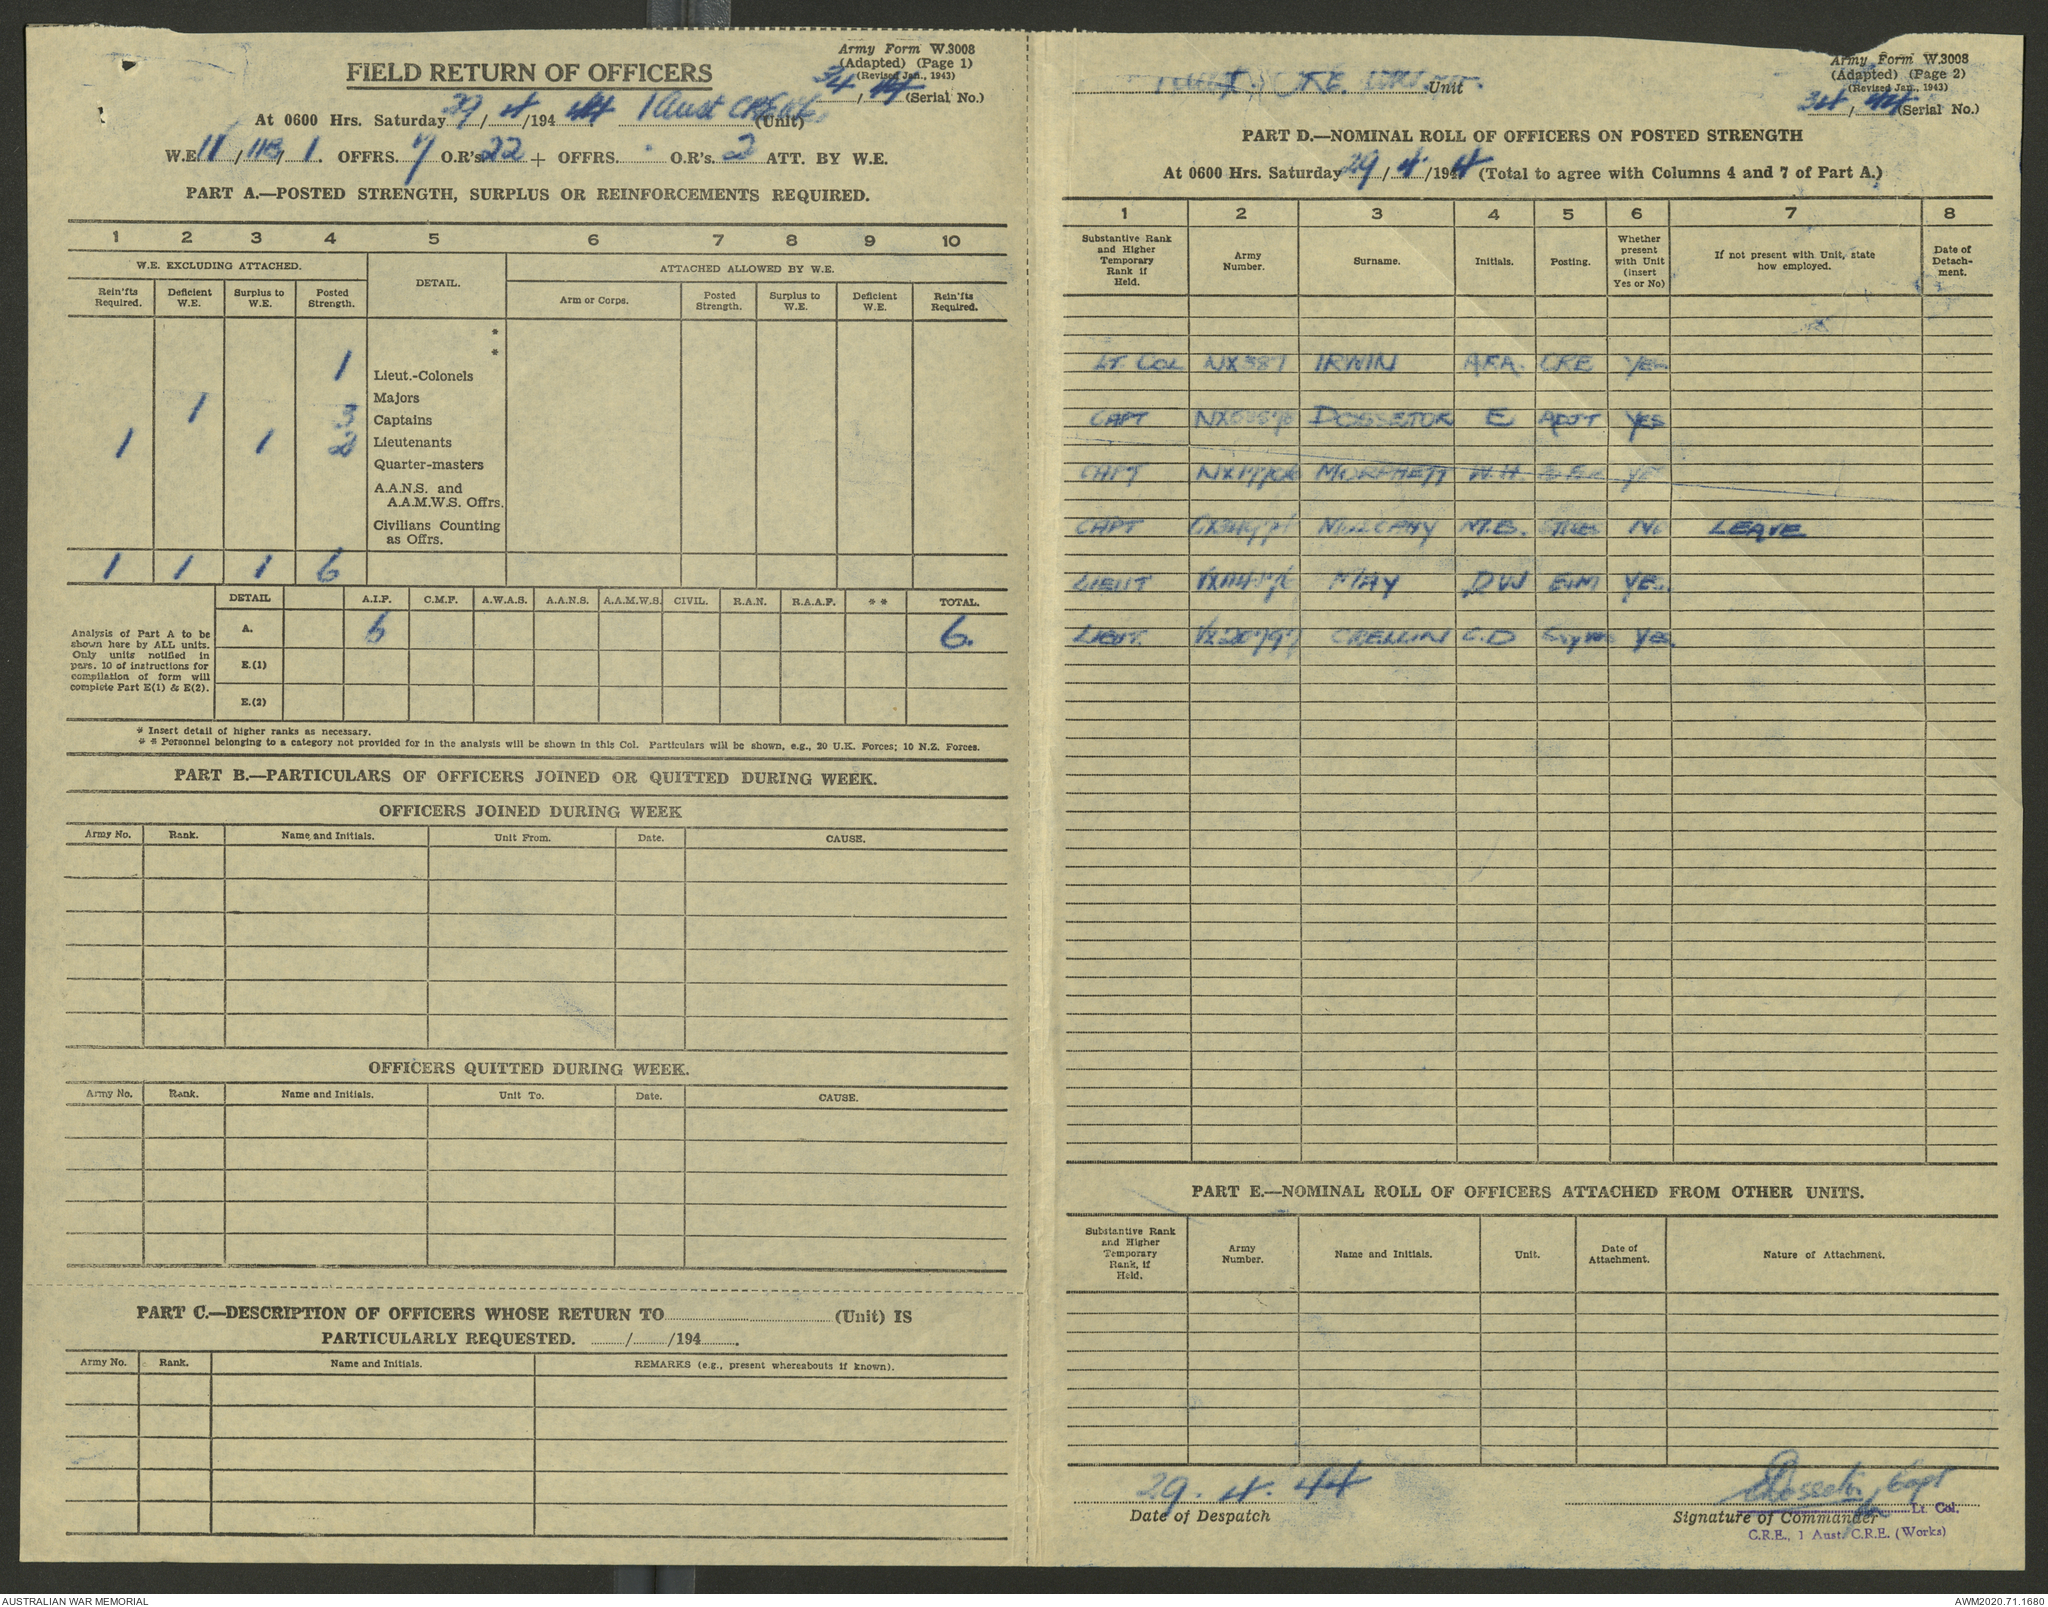 Army Form W.3008
(Adapted) (Page 1)
(Revised Jan., 1943)
34/44 (Serial No.)
FIELD RETURN OF OFFICERS
At 0600 Hrs. Saturday 29/4/194 44 1 Aust CRE (Unit)
W.E. 11/118/1. OFFRS. 7 O.R's. 22 + OFFRS. . O.R's. 2 ATT. BY W.E.
PART A.—POSTED STRENGTH, SURPLUS OR REINFORCEMENTS REQUIRED.
1 2 3 4 5 6 7 8 9 10
W.E. EXCLUDING ATTACHED. DETAIL. ATTACHED ALLOWED BY W.E.
Rein'fts Required. Deficient W.E. Surplus to W.E. Posted Strength. Arm or Corps. Posted Strength. Surplus to W.E. Deficient W.E. Rein'fts Required.
*
*
1 Lieut.-Colonels
1 Majors
3 Captains
1 1 2 Lieutenants
Quarter-masters
A.A.N.S. and
A.A.M.W.S. Offrs.
Civilians Counting
as Offrs.
1 1 1 6
DETAIL A.I.F. C.M.F. A.W.A.S. A.A.N.S. A.A.M.W.S. CIVIL. R.A.N. R.A.A.F. ** TOTAL.
Analysis of Part A to be shown here by ALL units. Only units notified in para. 10 of instructions for compilation of form will complete Part E(1) & E(2).
A. 6 6.
E.(1)
E.(2)
* Insert detail of higher ranks as necessary.
* * Personnel belonging to a category not provided for in the analysis will be shown in this Col. Particulars will be shown, e.g., 20 U.K. Forces; 10 N.Z. Forces.
PART B.—PARTICULARS OF OFFICERS JOINED OR QUITTED DURING WEEK.
OFFICERS JOINED DURING WEEK
Army No. Rank. Name and Initials. Unit From. Date. CAUSE.
OFFICERS QUITTED DURING WEEK.
Army No. Rank. Name and Initials. Unit To. Date. CAUSE.
PART C.—DESCRIPTION OF OFFICERS WHOSE RETURN TO (Unit) IS
PARTICULARLY REQUESTED. / /194 .
Army No. Rank. Name and Initials. REMARKS (e.g., present whereabouts if known).
Army Form W.3008
(Adapted) (Page 2)
(Revised Jan., 1943)
34/44 (Serial No.)
CRE Unit
PART D.—NOMINAL ROLL OF OFFICERS ON POSTED STRENGTH
At 0600 Hrs. Saturday 29/4/1944 (Total to agree with Columns 4 and 7 of Part A.)
1 2 3 4 5 6 7 8
Substantive Rank and Higher Temporary Rank if Held. Army Number. Surname. Initials. Posting. Whether present with Unit (insert Yes or No) If not present with Unit, state how employed. Date of Detachment.
LT COL NX387 IRWIN A.F.A. CRE YES
CAPT DOSSETOR E ADJT YES
CAPT MORPHETT W.H.
CAPT M.B. NO LEAVE
LIEUT MAY D W E&M YES
LIEUT. CRELLIN C.D YES
PART E.—NOMINAL ROLL OF OFFICERS ATTACHED FROM OTHER UNITS.
Substantive Rank and Higher Temporary Rank, if Held. Army Number. Name and Initials. Unit. Date of Attachment. Nature of Attachment.
29. 4. 44
Date of Despatch
EDossetor Capt
for Lt. Col.
Signature of Commander
C.R.E., 1 Aust. C.R.E. (Works)
AUSTRALIAN WAR MEMORIAL
AWM2020.71.1680